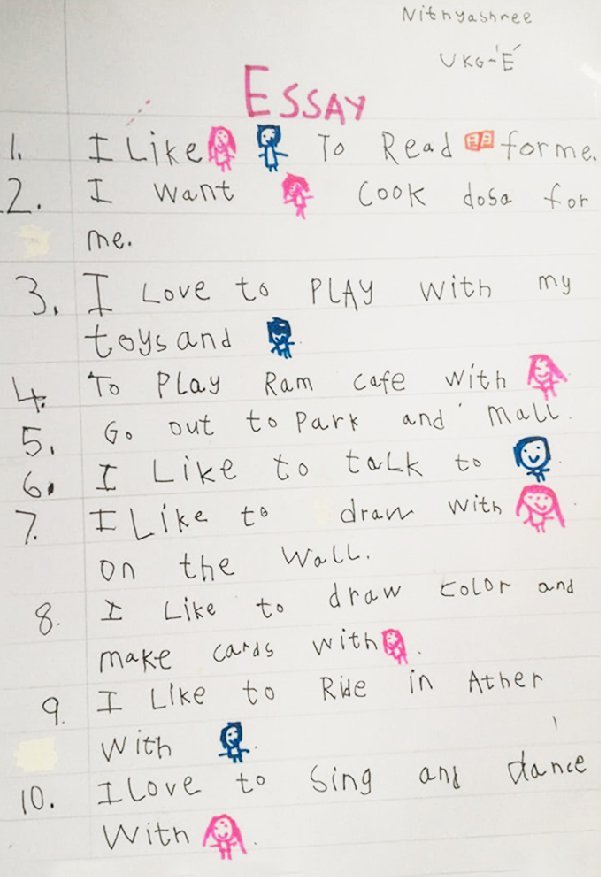 Nithyashree
UKG-'E'
ESSAY
1. I Like To Read for me.
2. I want cook dosa for
me.
3. I Love to PLAY with my
toys and
4. To PLay Ram cafe with
5. Go out to Park and mall.
6. I Like to talk to
7. I Like to draw with
on the Wall.
8. I Like to draw color and
make cards with .
9. I Like to Ride in Ather
with .
10. I Love to Sing and dance
With .